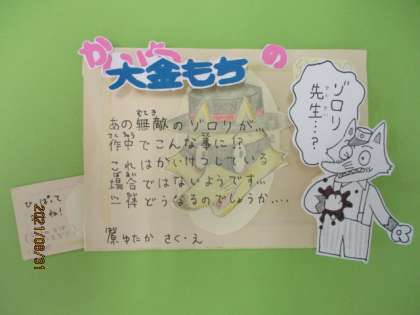 かいけつ
大金もち
の
あの無敵のゾロリが…
作中でこんな事に!?
これはかいけつしている
場合ではないようです…
一体どうなるのでしょうか….
原ゆたか さく・え
ゾロリ
先生…?
ひっぱって
ね!
2021/08/31